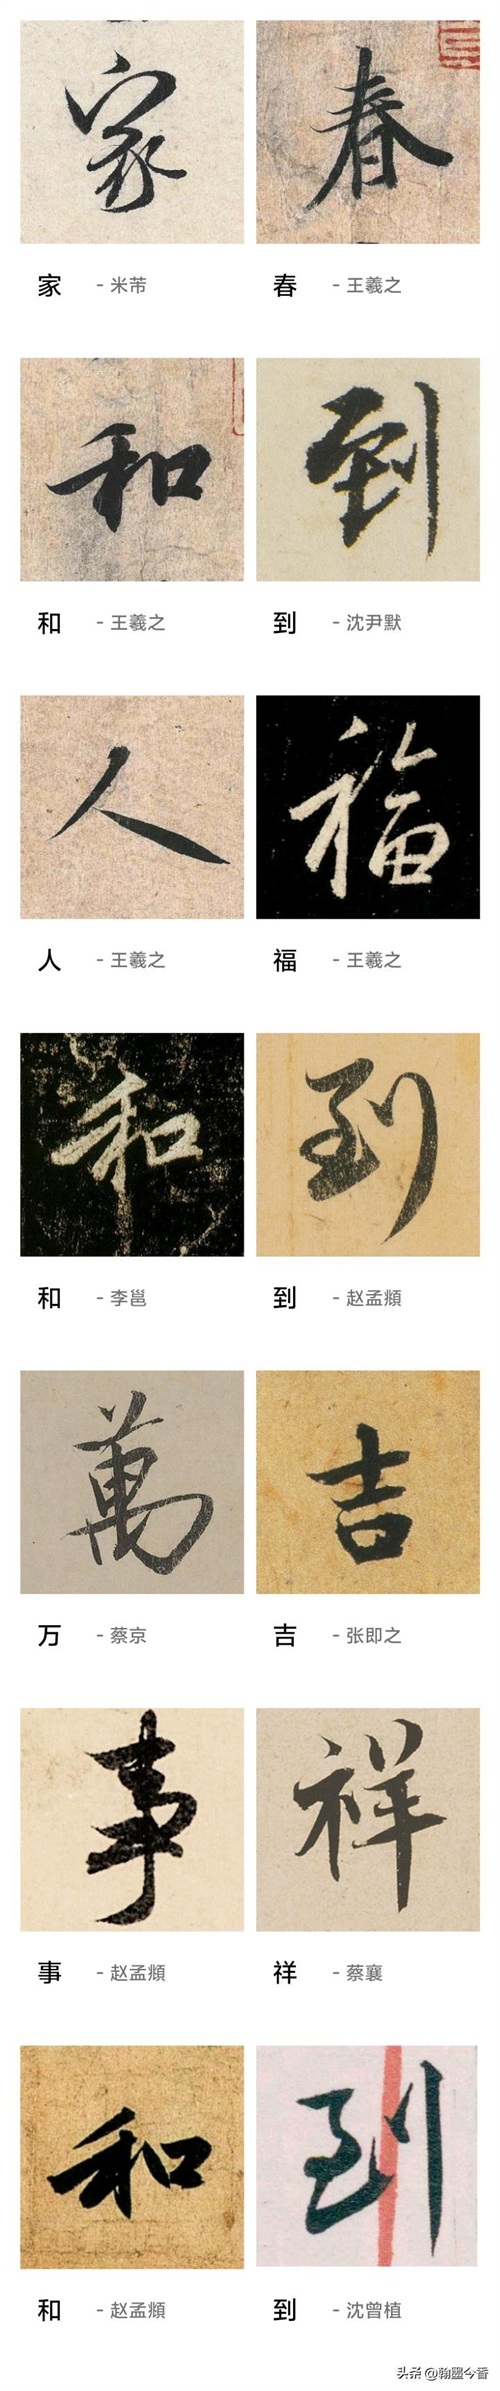 家 春
家 - 米芾 春 - 王羲之
和 到
和 - 王羲之 到 - 沈尹默
人 福
人 - 王羲之 福 - 王羲之
和 到
和 - 李邕 到 - 赵孟頫
萬 吉
万 - 蔡京 吉 - 张即之
事 祥
事 - 赵孟頫 祥 - 蔡襄
和 到
和 - 赵孟頫 到 - 沈曾植
头条 @翰墨今香